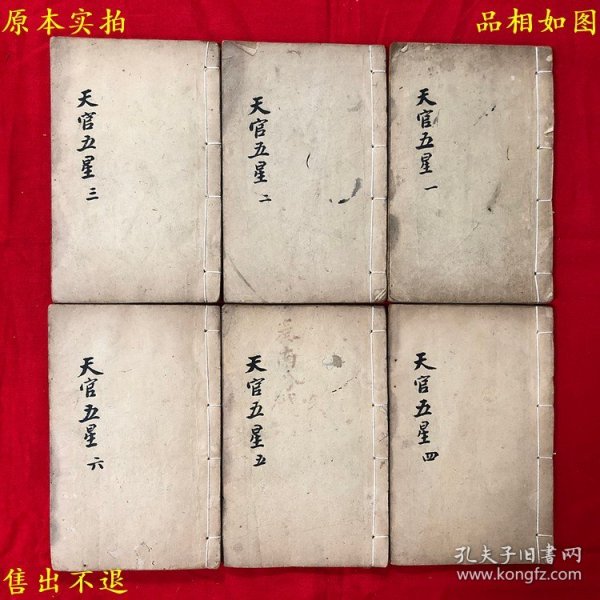 原本实拍
品相如图
天官五星 一
天官五星 二
天官五星 三
天官五星 四
天官五星 五
天官五星 六
售出不退
孔夫子旧书网
www.kongfz.com